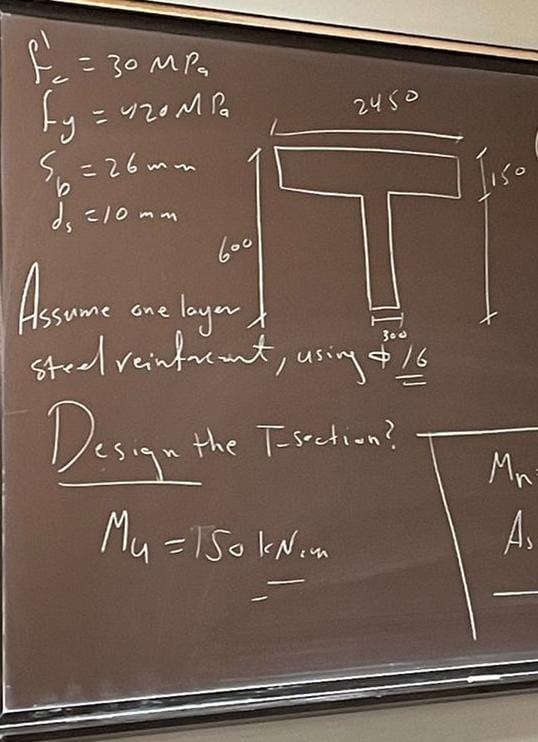 f'c = 30 MPa
fy = 420 MPa
Sb = 26 mm
ds = 10 mm
2450
150
600
300
Assume one layer
steel reinforcement, using ϕ 16
Design the T-section?
Mu = 150 kN.m
Mn=
As